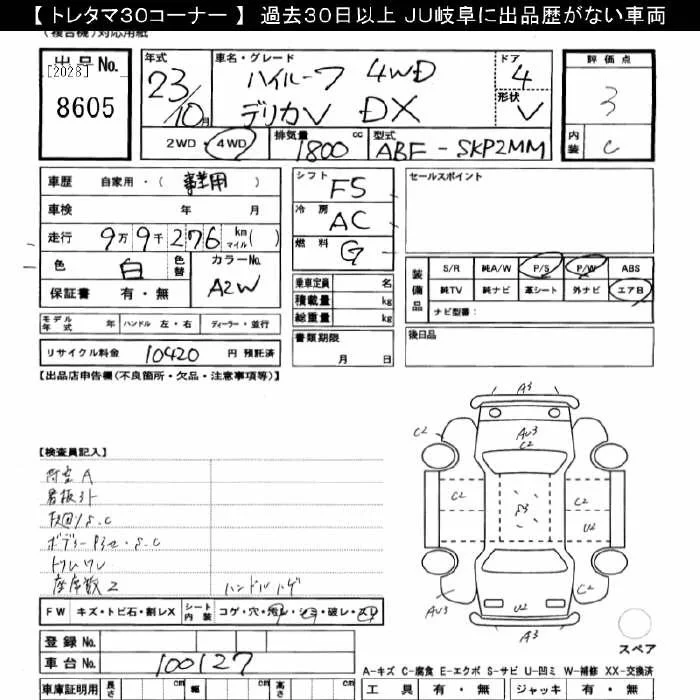 【 トレタマ30コーナー 】 過去30日以上 JU岐阜に出品歴がない車両
(複合機)対応用紙
出品 No.
[2028]
8605
年式
23/10月
車名・グレード
ハイルーフ 4WD
デリカV DX
ドア
4
形状
V
2WD・4WD
排気量 1800 cc
型式 ABF-SKP2MM
評価点
3
内装
C
車歴 自家用・( 事業用 )
車検 年 月
走行 9万9千276 km マイル( )
色 白 色替
カラーNo. A2W
保証書 有・無
シフト F5
冷房 AC
燃料 G
乗車定員 名
積載量 kg
総重量 kg
書類期限
月 日
セールスポイント
装備品
S/R 純A/W P/S P/W ABS
純TV 純ナビ 革シート 外ナビ エアB
ナビ型番:
後日品
モデル年式 年 ハンドル 左・右 ディーラー・並行
リサイクル料金 10420 円 預託済
【出品店申告欄(不良箇所・欠品・注意事項等)】
【検査員記入】
荷室 A
看板ヌト
座席数 2
ハンドル ハゲ
FW キズ・トビ石・割レX シート内装 コゲ・穴・汚レ・シミ・破レ・スレ
A3
C2
AU3
C2
C2
C2
C2
S3
U2
AU3
U2
C2
A3
スペア
登録 No.
車台 No. 100127
A-キズ C-腐食 E-エクボ S-サビ U-凹ミ W-補修 XX-交換済
車庫証明用 長さ cm 幅 cm 高さ cm
工具 有・無 ジャッキ 有・無